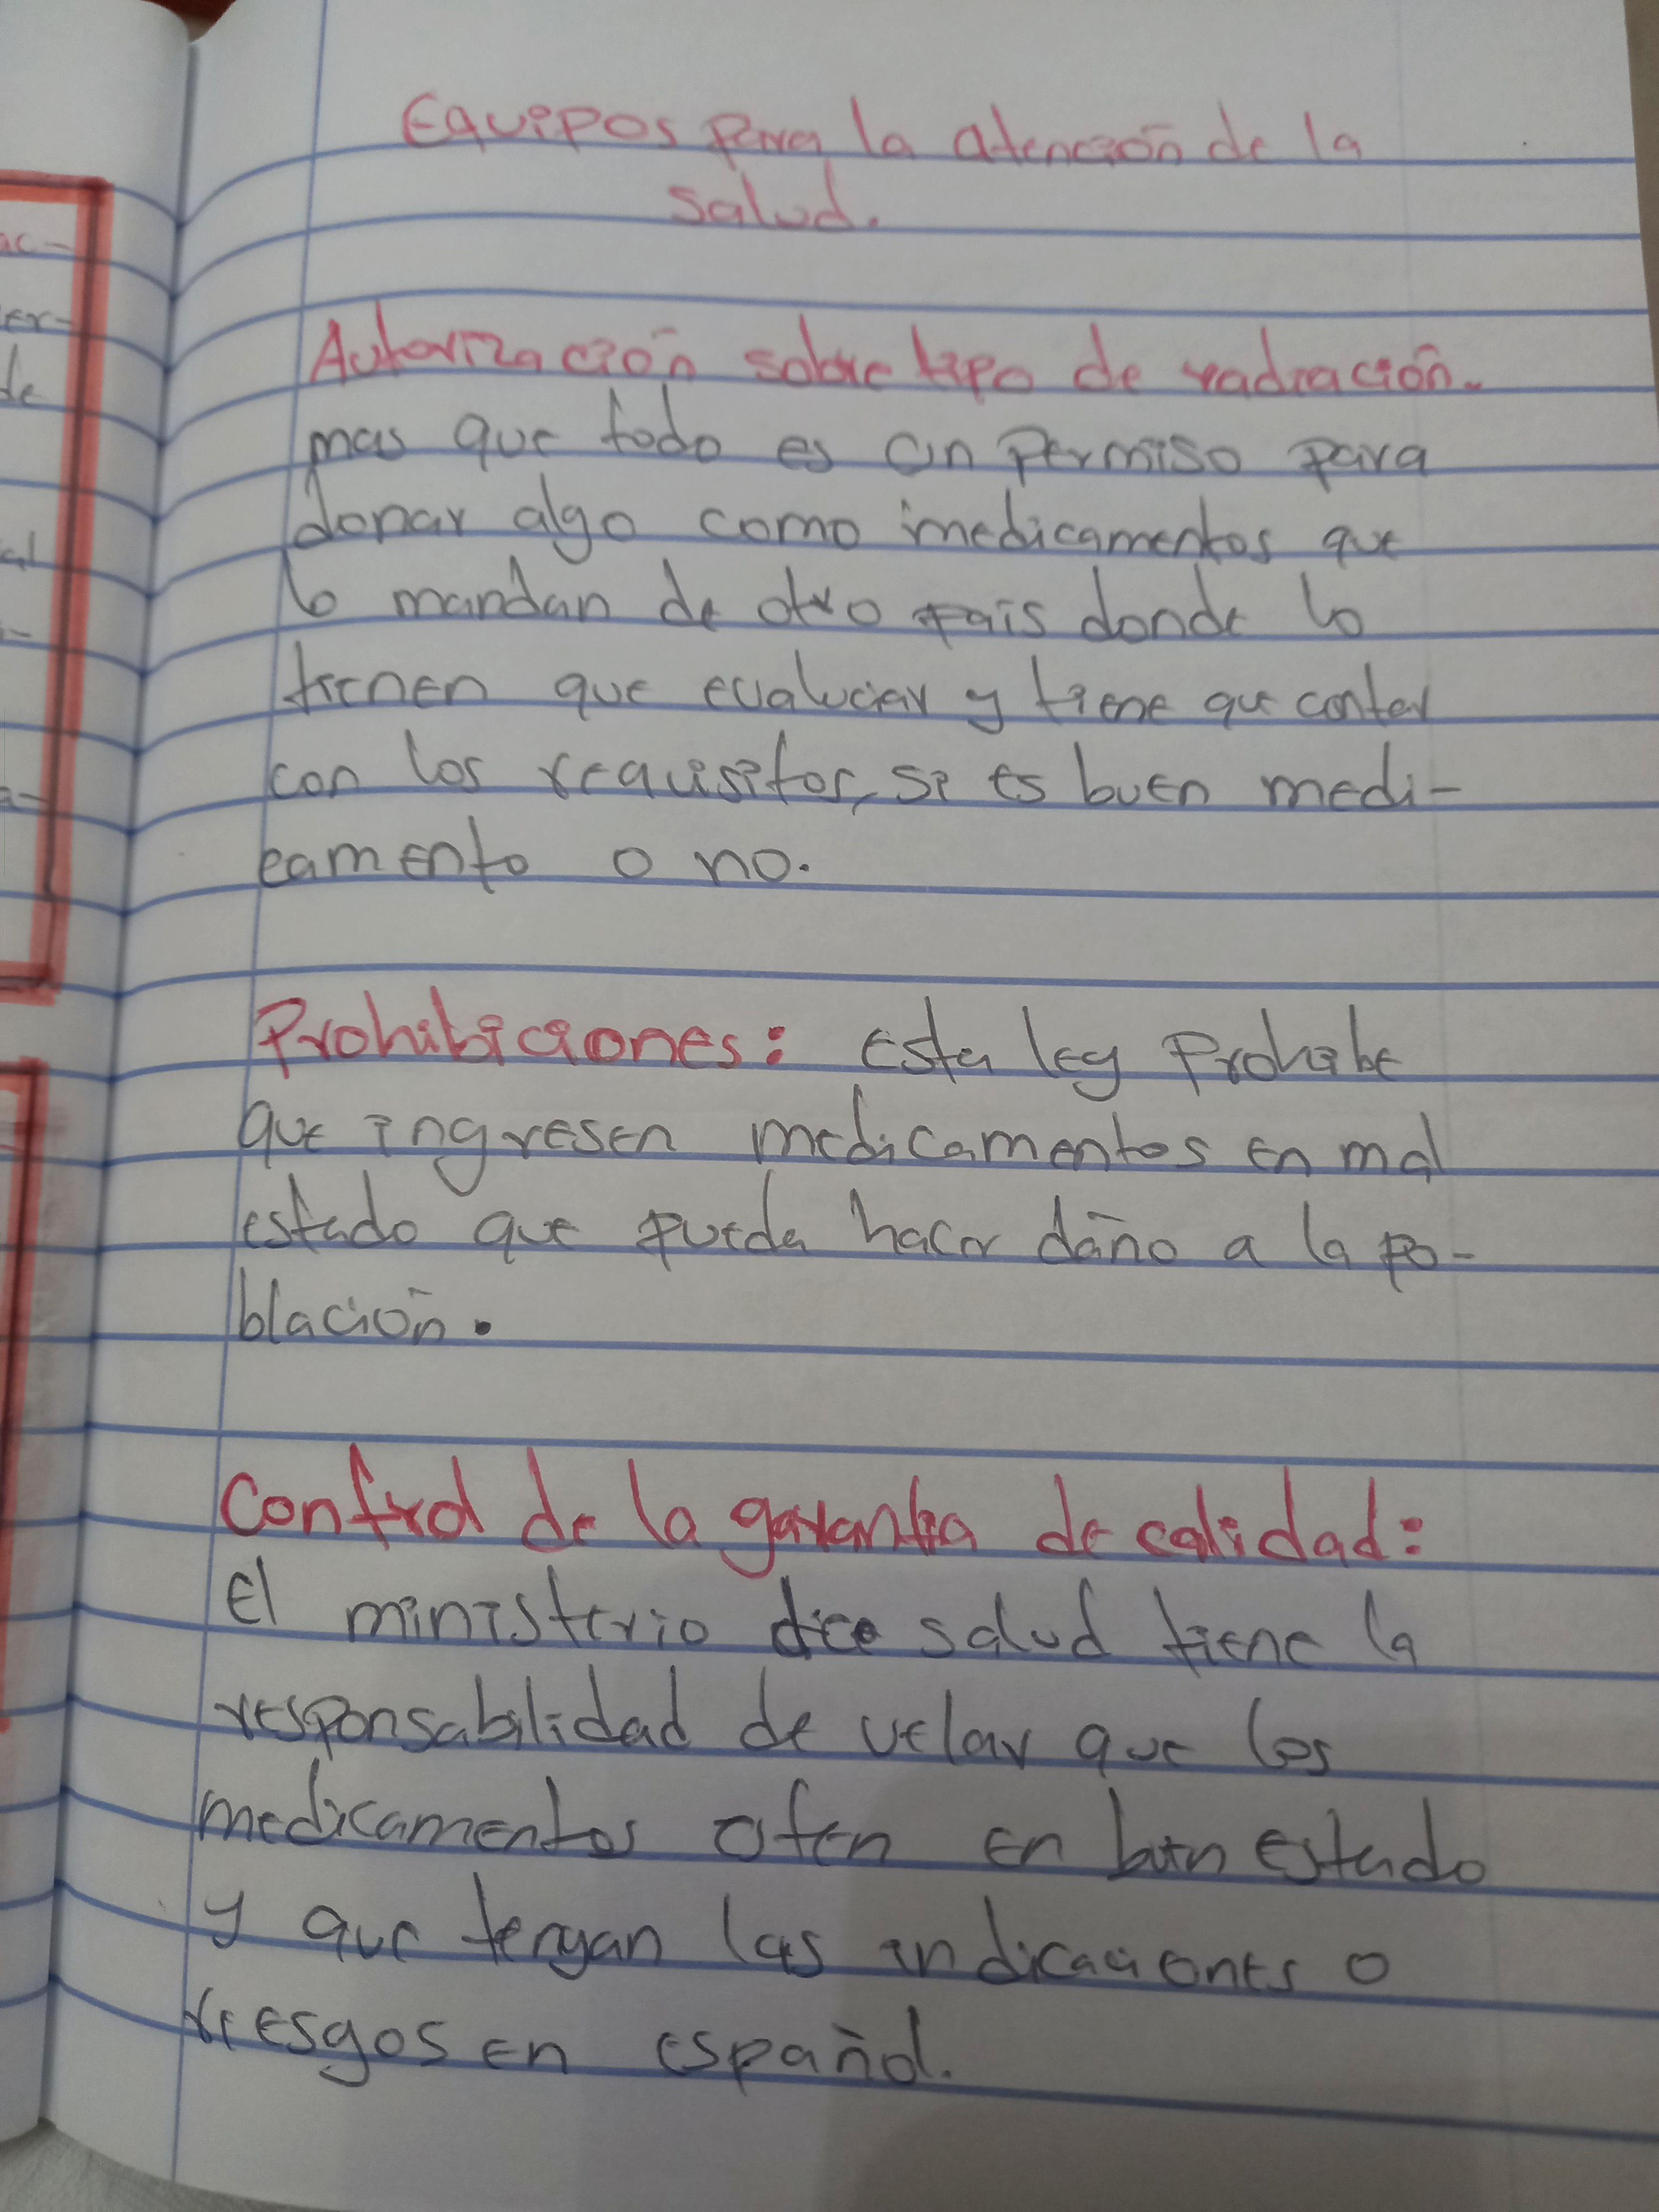 Equipos para la atención de la
salud.
Autorización sobre tipo de radiación.
mas que todo es un permiso para
donar algo como medicamentos que
lo mandan de otro pais donde lo
tienen que evaluar y tiene que contar
con los requisitos, si es buen medi-
camento o no.
Prohibiciones: Esta ley prohibe
que ingresen medicamentos en mal
estado que pueda hacer daño a la po-
blación.
Control de la garantia de calidad:
El ministerio de salud tiene la
responsabilidad de velar que los
medicamentos esten en buen estado
y que tengan las indicaciones o
riesgos en español.
ac-
er-
de
al
i-
a-